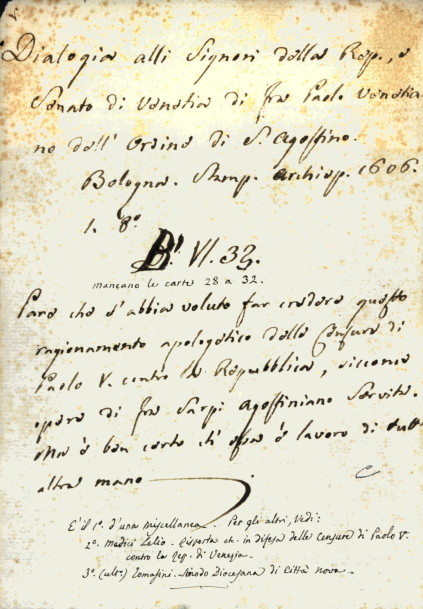 V.
Dialogia alli Signori della Rep., e
Senato di Venetia di fra Paolo Venetia-
no dell' Ordine di S. Agostino.
Bologna. Stamp. Archiep. 1606.
1. 8.°
B. VI. 33.
mancano le carte 28 a 32.
Pare che s'abbia voluto far credere questo
ragionamento apologetico delle Censure di
Paolo V. contro la Repubblica, siccome
opera di fra Sarpi Agostiniano Servita.
Ma è ben certo ch'essa è lavoro di tutt'
altra mano
E' il 1.° d'una miscellanea. Per gli altri, Vedi:
2.° Medici Lelio. Risposta etc. in difesa delle Censure di Paolo V.°
contro la Rep. di Venezia.
3.° (ult.°) Tomasini. Sinodo Diocesana di Città nova.